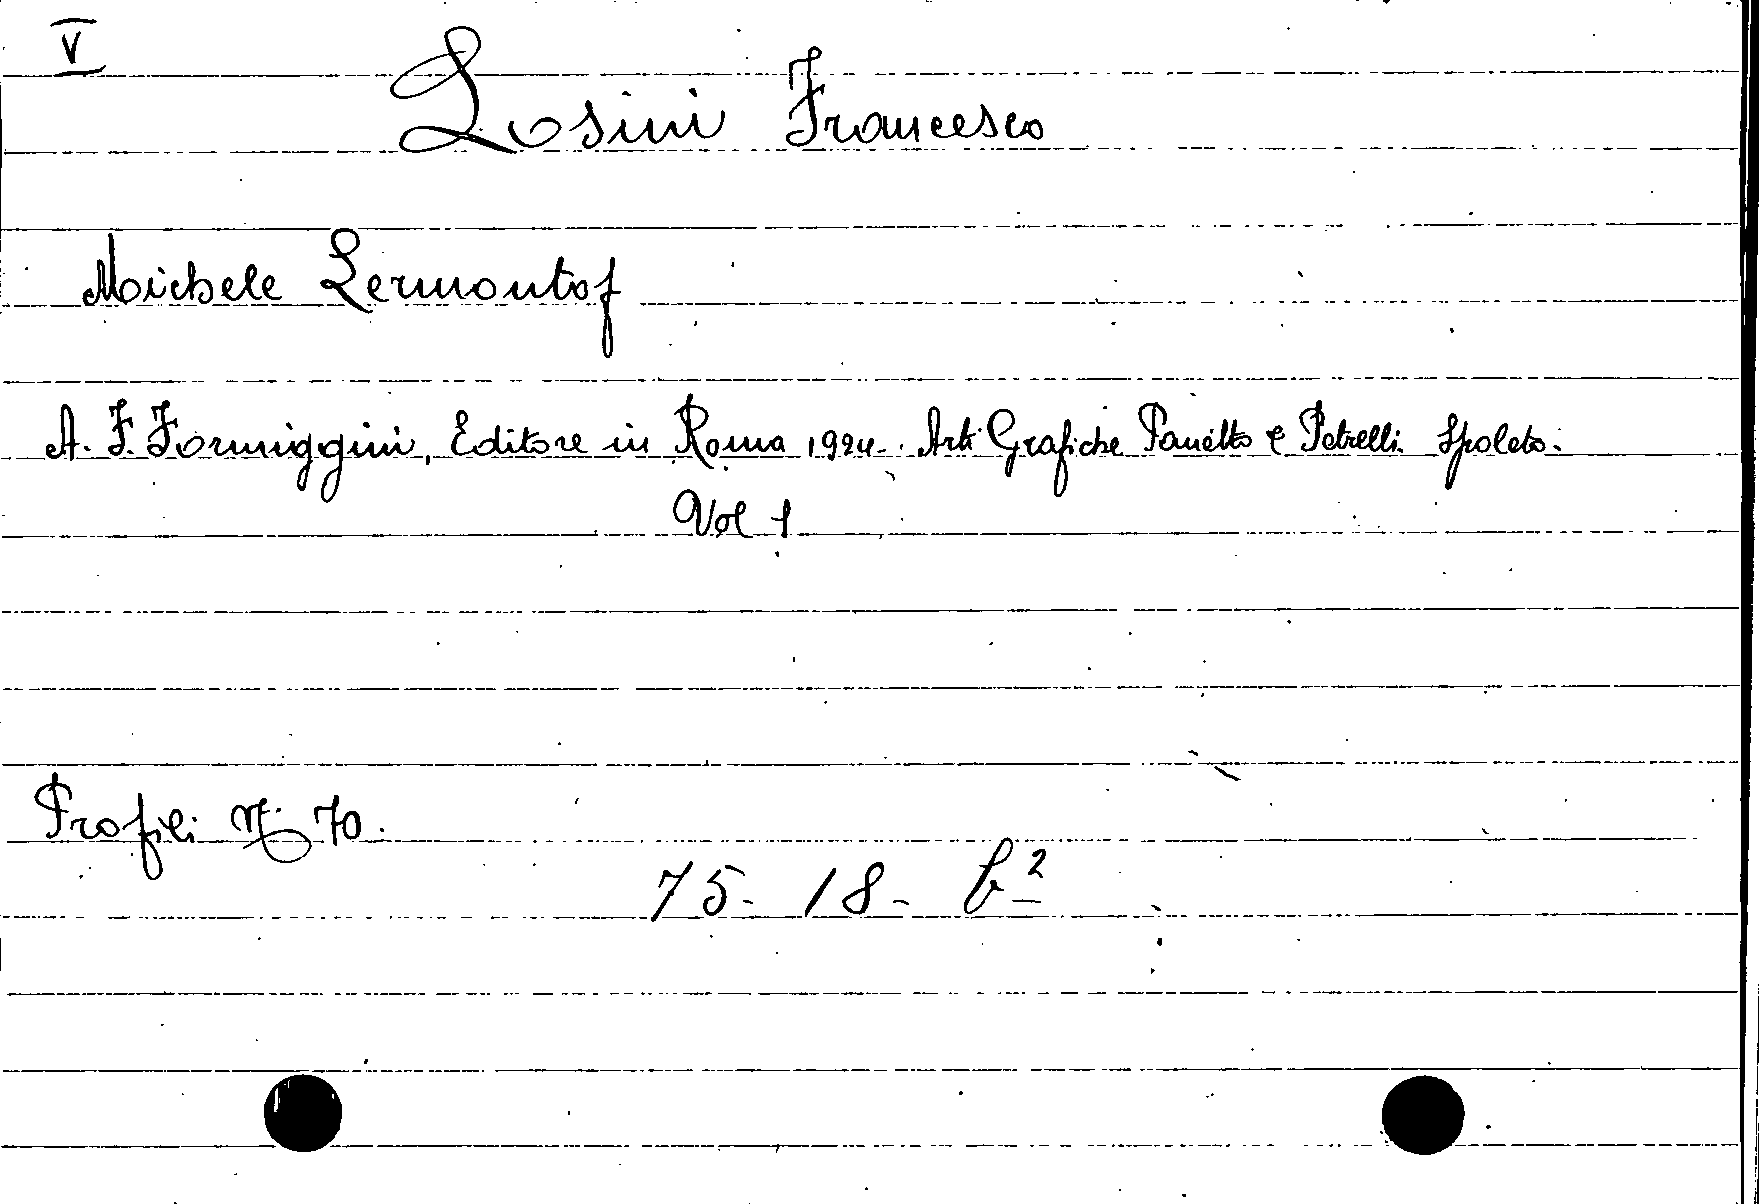 V
Losini Francesco
Michele Lermontof
A. F. Formiggini, Editore in Roma 1924. Arti Grafiche Panetto e Petrelli. Spoleto.
Vol 1
Profili N. 70.
75 - 18 - b²